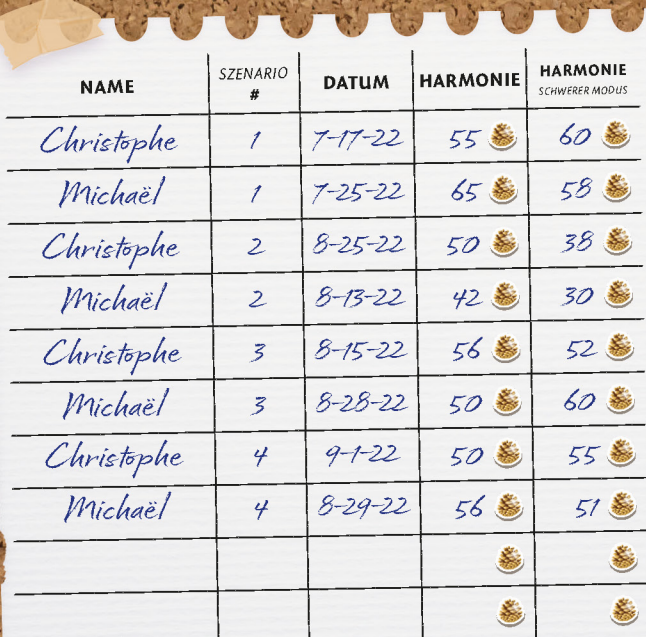 NAME SZENARIO # DATUM HARMONIE HARMONIE SCHWERER MODUS
Christophe 1 7-17-22 55 60
Michaël 1 7-25-22 65 58
Christophe 2 8-25-22 50 38
Michaël 2 8-13-22 42 30
Christophe 3 8-15-22 56 52
Michaël 3 8-28-22 50 60
Christophe 4 9-1-22 50 55
Michaël 4 8-29-22 56 51